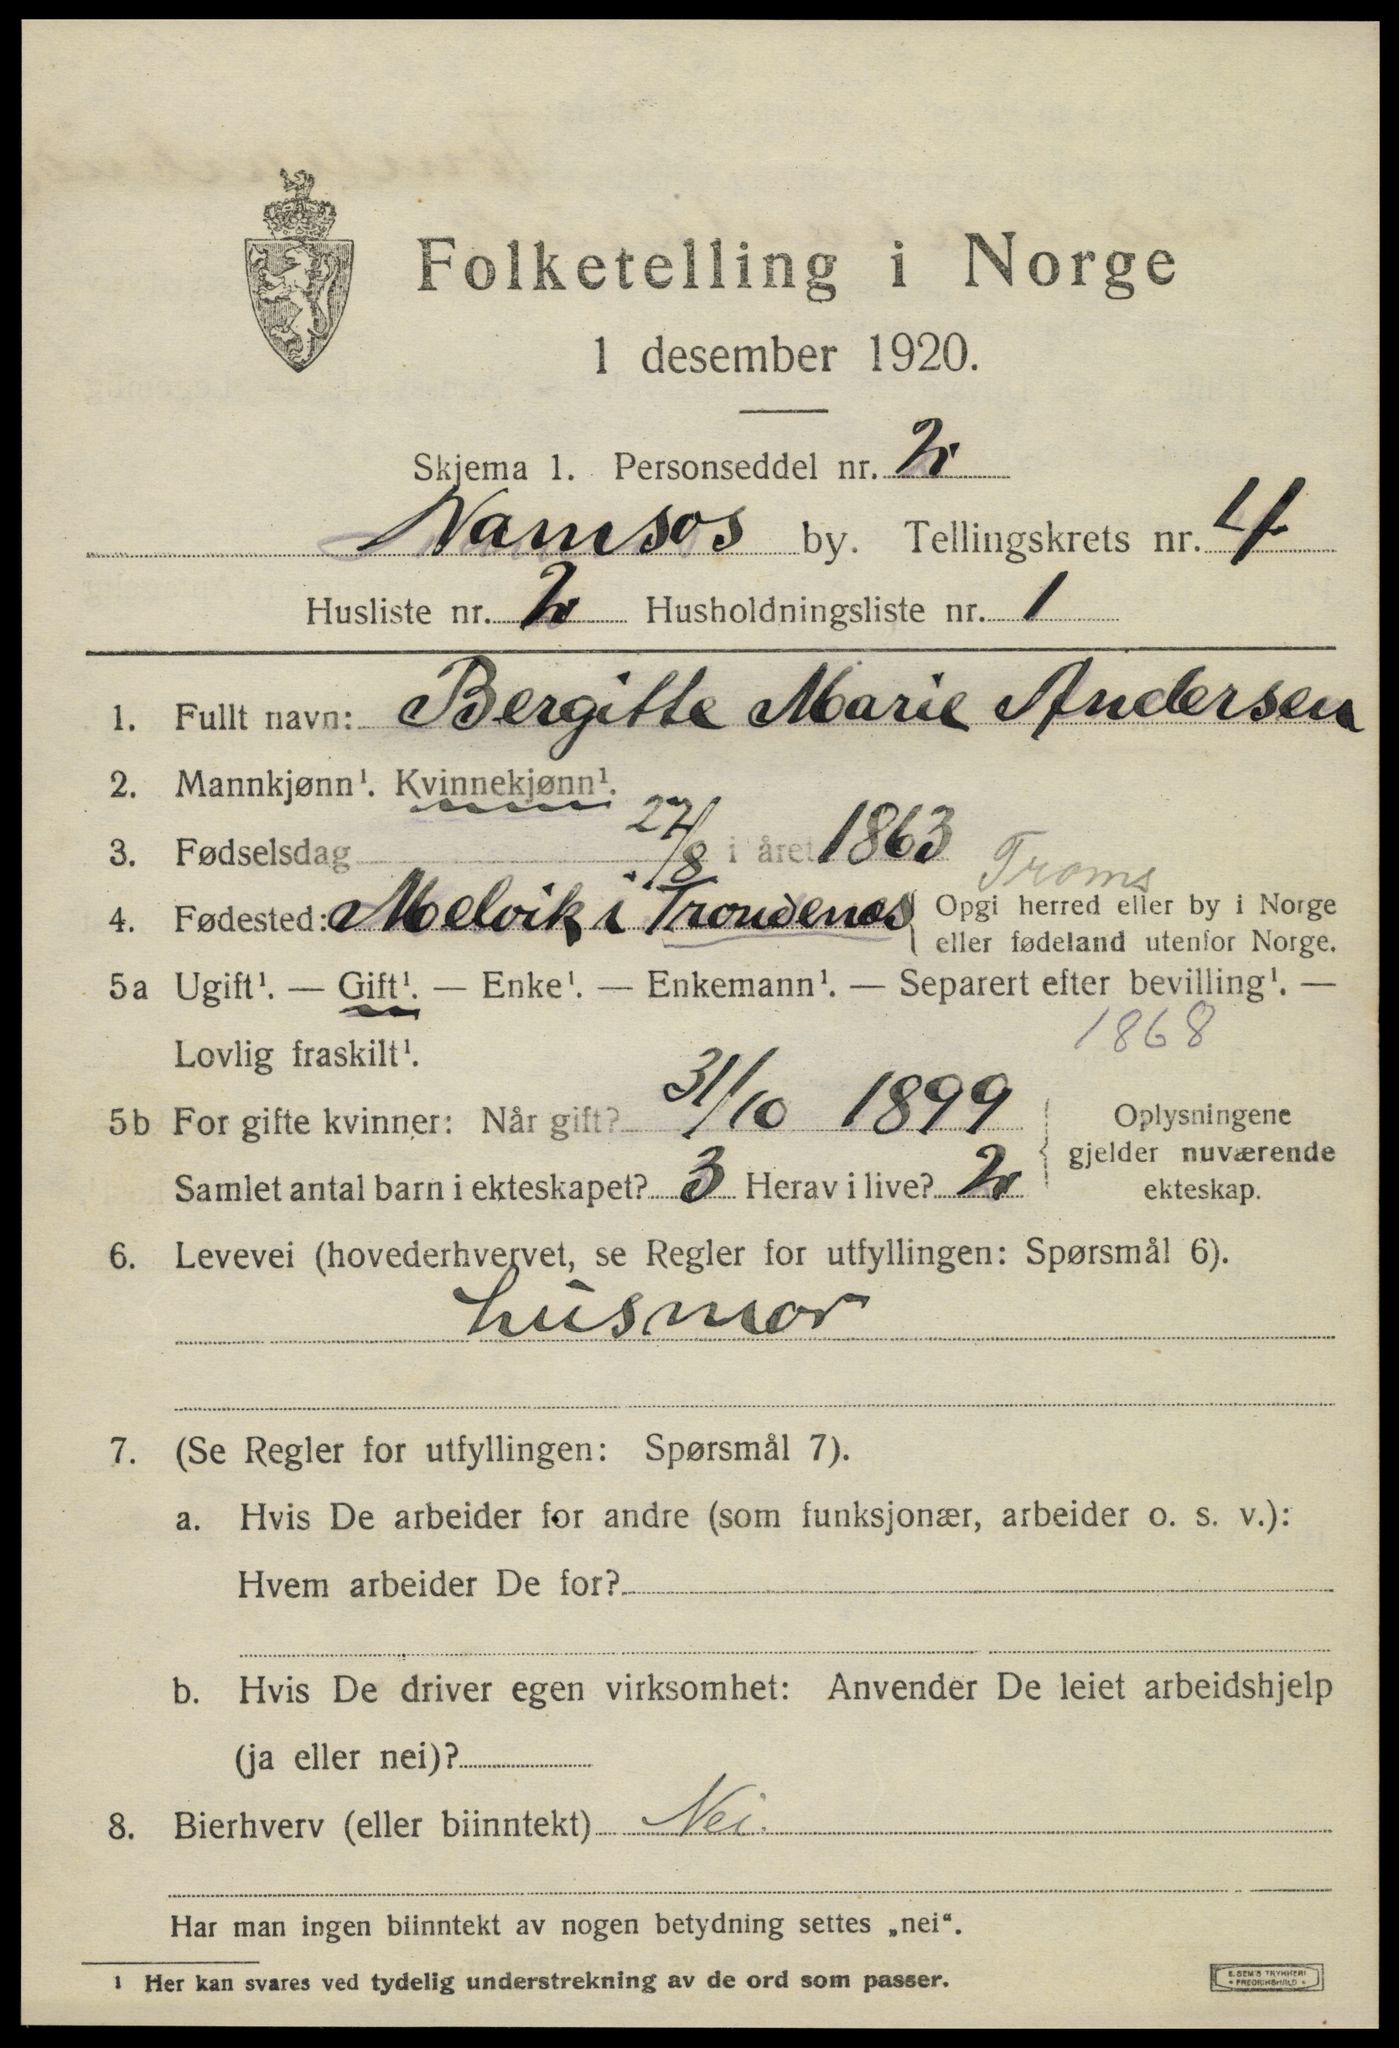 Folketelling i Norge
1 desember 1920.
Skjema 1. Personseddel nr. 2
Namsos by. Tellingskrets nr. 4
Husliste nr. 2 Husholdningsliste nr. 1
1. Fullt navn: Bergitte Marie Andersen
2. Mannkjønn¹. Kvinnekjønn¹.
3. Fødselsdag 27/8 i året 1863
Troms
4. Fødested: Melvik i Trondenes { Opgi herred eller by i Norge
eller fødeland utenfor Norge.
5a Ugift¹. — Gift¹. — Enke¹. — Enkemann¹. — Separert efter bevilling¹. —
Lovlig fraskilt¹. 1868
5b For gifte kvinner: Når gift? 31/10 1899 Oplysningene
gjelder nuværende
Samlet antal barn i ekteskapet? 3 Herav i live? 2 ekteskap.
6. Levevei (hovederhvervet, se Regler for utfyllingen: Spørsmål 6).
husmor
7. (Se Regler for utfyllingen: Spørsmål 7).
a. Hvis De arbeider for andre (som funksjonær, arbeider o. s. v.):
Hvem arbeider De for?
b. Hvis De driver egen virksomhet: Anvender De leiet arbeidshjelp
(ja eller nei)?
8. Bierhverv (eller biinntekt) Nei.
Har man ingen biinntekt av nogen betydning settes „nei“.
¹ Her kan svares ved tydelig understrekning av de ord som passer.
E. SEM'S TRYKKERI
FREDRIKSHALD